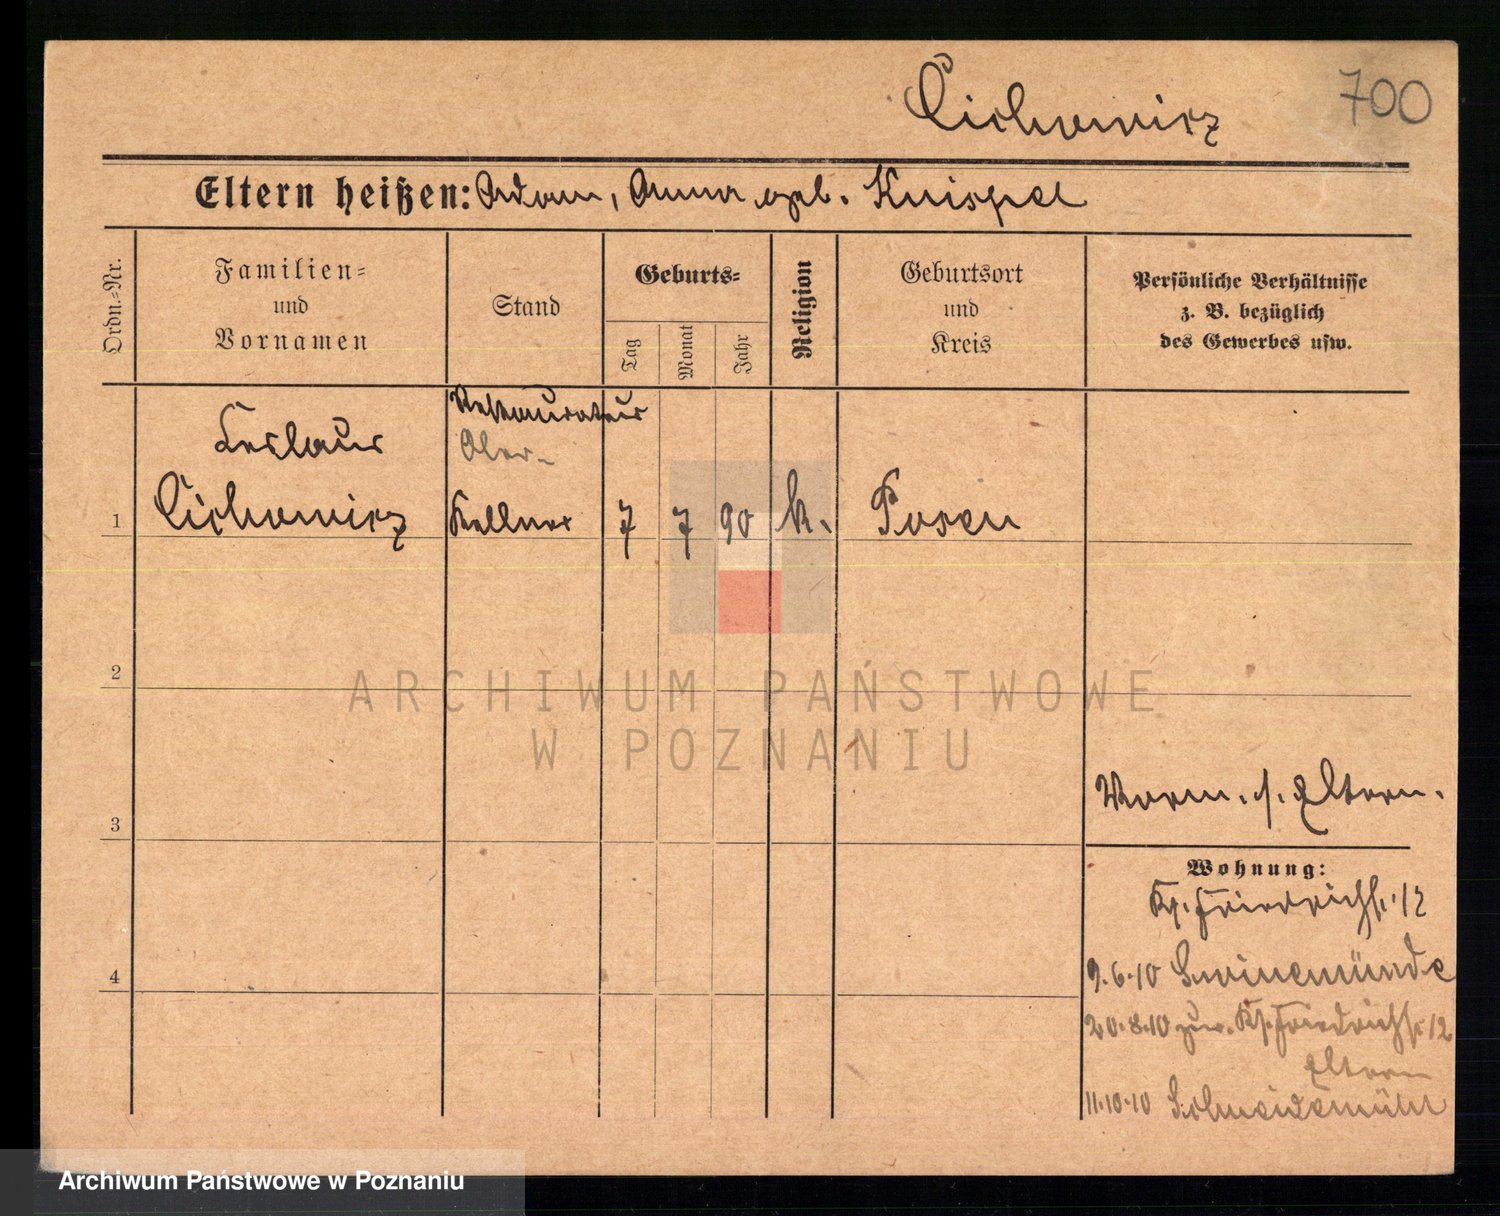 Cichowicz 700
Eltern heißen: Adam, Anna geb. Knispel
Ordn.=Nr.
Familien=
und
Vornamen
Stand
Geburts=
Tag
Monat
Jahr
Religion
Geburtsort
und
Kreis
Persönliche Verhältnisse
z. B. bezüglich
des Gewerbes usw.
Restaurateur
Ober-
Leslaus
1 Cichowicz Kellner 7 7 90 k. Posen
2
3
4
ARCHIWUM PAŃSTWOWE
W POZNANIU
Vorm. s. Eltern.
Wohnung:
Ks. Friedrichst. 12
9.6.10 Swinemünde
20.8.10 zur. Ks. Friedrichst. 12
Eltern
11.10.10 Schneidemühl
Archiwum Państwowe w Poznaniu